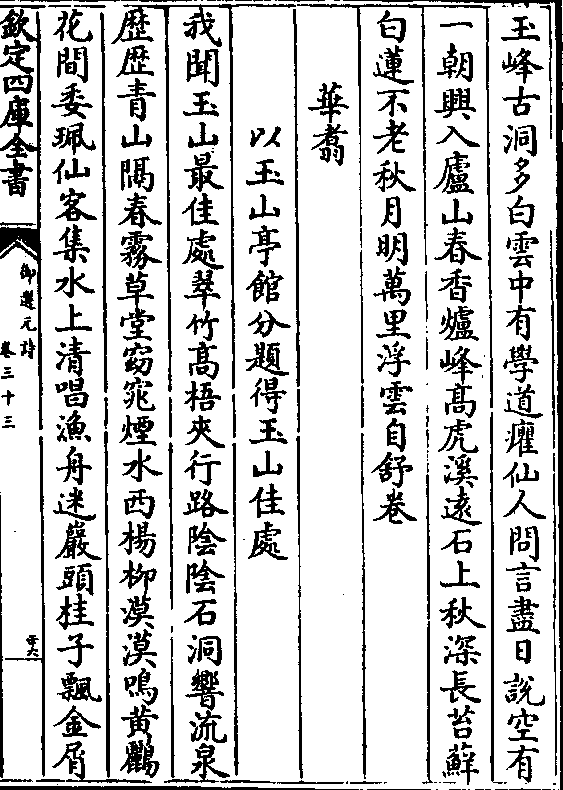 玉峰古洞多白雲中有學道癯仙人問言盡日說空有
一朝興入廬山春香爐峰高虎溪遠石上秋深長苔蘚
白蓮不老秋月明萬里浮雲自舒卷
華翥
以玉山亭館分題得玉山佳處
我聞玉山最佳處翠竹高梧夾行路陰陰石洞響流泉
歴歴青山隔春霧草堂窈窕煙水西楊柳漠漠鳴黄鸝
花間委珮仙客集水上清唱漁舟迷巖頭桂子飄金屑
欽定四庫全書
御選元詩
卷三十三